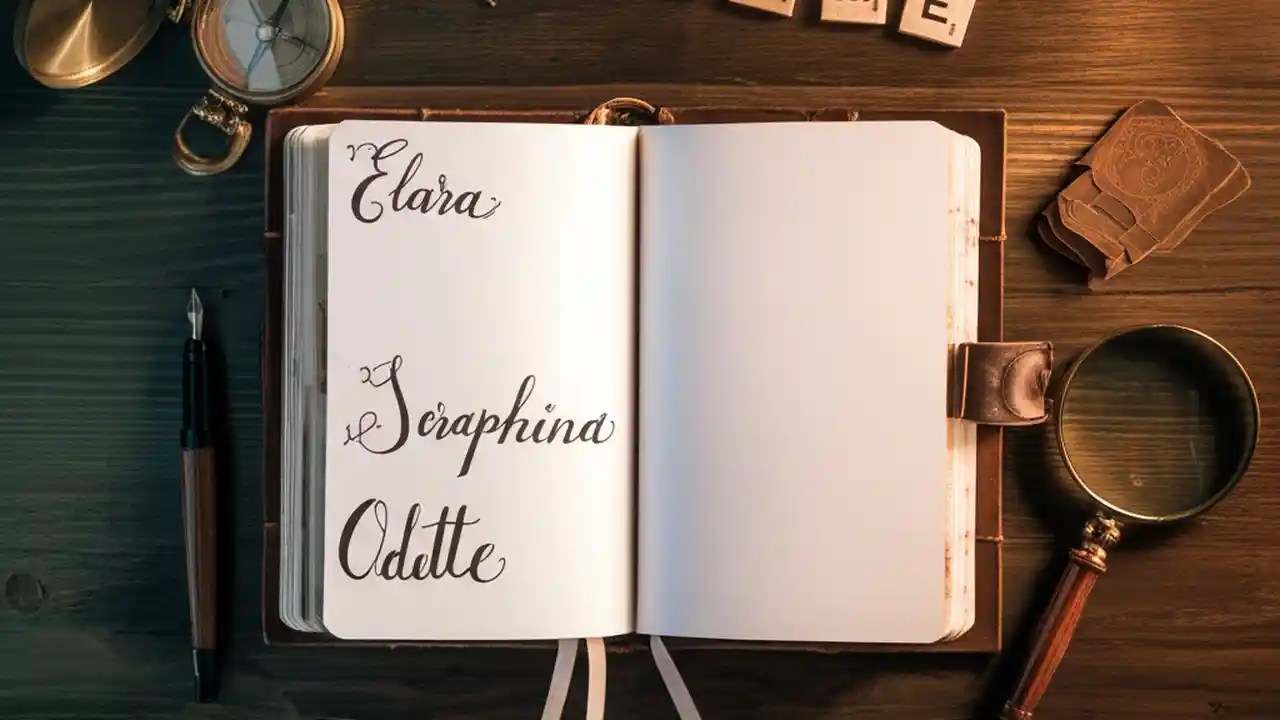 E
Elara
Seraphina
Odette